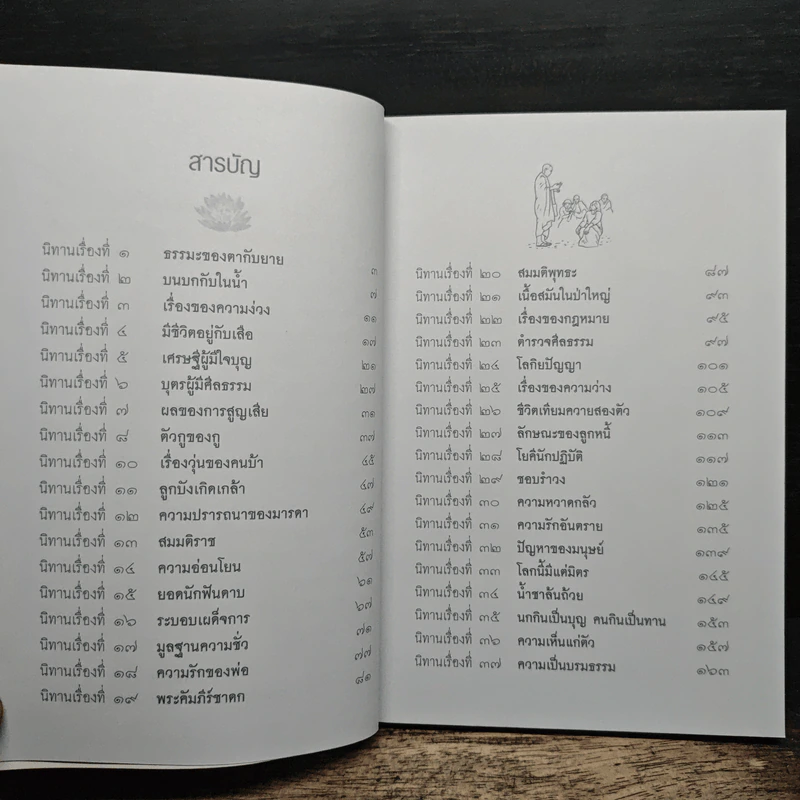 สารบัญ
นิทานเรื่องที่ ๑ ธรรมะของตากับยาย ๓
นิทานเรื่องที่ ๒ บนบกกับในน้ำ ๗
นิทานเรื่องที่ ๓ เรื่องของความง่วง ๑๑
นิทานเรื่องที่ ๔ มีชีวิตอยู่กับเสือ ๑๗
นิทานเรื่องที่ ๕ เศรษฐีผู้มีใจบุญ ๒๑
นิทานเรื่องที่ ๖ บุตรผู้มีศีลธรรม ๒๗
นิทานเรื่องที่ ๗ ผลของการสูญเสีย ๓๑
นิทานเรื่องที่ ๘ ตัวกูของกู ๓๗
นิทานเรื่องที่ ๑๐ เรื่องวุ่นของคนบ้า ๔๕
นิทานเรื่องที่ ๑๑ ลูกบังเกิดเกล้า ๔๗
นิทานเรื่องที่ ๑๒ ความปรารถนาของมารดา ๔๙
นิทานเรื่องที่ ๑๓ สมมติราช ๕๓
นิทานเรื่องที่ ๑๔ ความอ่อนโยน ๕๗
นิทานเรื่องที่ ๑๕ ยอดนักฟันดาบ ๖๑
นิทานเรื่องที่ ๑๖ ระบอบเผด็จการ ๖๗
นิทานเรื่องที่ ๑๗ มูลฐานความชั่ว ๗๑
นิทานเรื่องที่ ๑๘ ความรักของพ่อ ๗๗
นิทานเรื่องที่ ๑๙ พระคัมภีร์ชาดก ๘๑
นิทานเรื่องที่ ๒๐ สมมติพุทธะ ๘๗
นิทานเรื่องที่ ๒๑ เนื้อสมันในป่าใหญ่ ๙๓
นิทานเรื่องที่ ๒๒ เรื่องของกฎหมาย ๙๕
นิทานเรื่องที่ ๒๓ ตำรวจศีลธรรม ๙๗
นิทานเรื่องที่ ๒๔ โลกิยปัญญา ๑๐๑
นิทานเรื่องที่ ๒๕ เรื่องของความว่าง ๑๐๕
นิทานเรื่องที่ ๒๖ ชีวิตเทียมควายสองตัว ๑๐๙
นิทานเรื่องที่ ๒๗ ลักษณะของลูกหนี้ ๑๑๓
นิทานเรื่องที่ ๒๘ โยคีนักปฏิบัติ ๑๑๗
นิทานเรื่องที่ ๒๙ ชอบรำวง ๑๒๑
นิทานเรื่องที่ ๓๐ ความหวาดกลัว ๑๒๕
นิทานเรื่องที่ ๓๑ ความรักอันตราย ๑๓๕
นิทานเรื่องที่ ๓๒ ปัญหาของมนุษย์ ๑๓๙
นิทานเรื่องที่ ๓๓ โลกนี้มีแต่มิตร ๑๔๕
นิทานเรื่องที่ ๓๔ น้ำชาล้นถ้วย ๑๔๙
นิทานเรื่องที่ ๓๕ นกกินเป็นบุญ คนกินเป็นทาน ๑๕๓
นิทานเรื่องที่ ๓๖ ความเห็นแก่ตัว ๑๕๗
นิทานเรื่องที่ ๓๗ ความเป็นบรมธรรม ๑๖๓